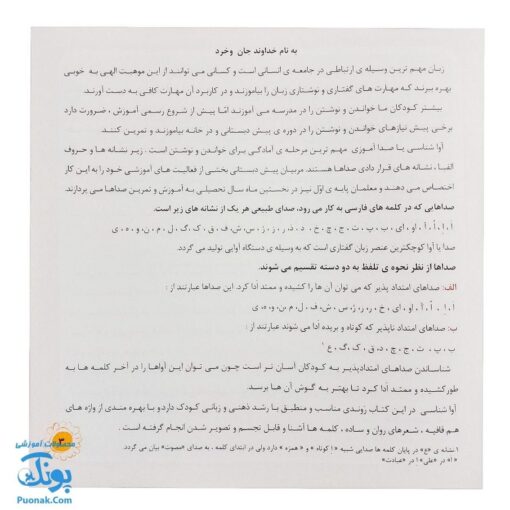 به نام خداوند جان وخرد
زبان مهم ترین وسیله ی ارتباطی در جامعه ی انسانی است و کسانی می توانند از این موهبت الهی به خوبی
بهره ببرند که مهارت های گفتاری و نوشتاری زبان را بیاموزند و در کاربرد آن مهارت کافی به دست آورند.
بیشتر کودکان ما خواندن و نوشتن را در مدرسه می آموزند امّا پیش از شروع رسمی آموزش، ضرورت دارد
برخی پیش نیازهای خواندن و نوشتن را در دوره ی پیش دبستانی و در خانه بیاموزند و تمرین کنند.
آوا شناسی یا صدا آموزی مهم ترین مرحله ی آمادگی برای خواندن و نوشتن است. زیر نشانه ها و حروف
الفبا، نشانه های قرار دادی صداها هستند. مربیان پیش دبستانی بخشی از فعالیت های آموزشی خود را به این کار
اختصاص می دهند و معلمان پایه ی اوّل نیز در نخستین ماه سال تحصیلی به آموزش و تمرین صداها می پردازند.
صداهایی که در کلمه های فارسی به کار می رود، صدای طبیعی هر یک از نشانه های زیر است.
اَ، اِ، اُ، آ، او، ای، ب، پ، ت، ج، چ، خ، د، ر، ز، ژ، س، ش، ف، ق، ک، گ، ل، م، ن، و، ه، ی
صدا یا آوا کوچکترین عنصر زبان گفتاری است که به وسیله ی دستگاه آوایی تولید می گردد.
صداها از نظر نحوه ی تلفظ به دو دسته تقسیم می شوند.
الف: صداهای امتداد پذیر که می توان آن ها را کشیده و ممتد ادا کرد. این صداها عبارتند از:
اَ، اِ، اُ، آ، او، ای، خ، ر، ز، ژ، س، ش، ف، ل، م، ن، و، ه، ی
ب: صداهای امتداد ناپذیر که کوتاه و بریده ادا می شوند عبارتند از:
ب، پ، ت، ج، چ، د، ق، ک، گ، ع ۱
شناساندن صداهای امتدادپذیر به کودکان آسان تر است چون می توان این آواها را در آخر کلمه ها به
طور کشیده و ممتد ادا کرد تا بهتر به گوش آن ها برسد.
آوا شناسی در این کتاب روندی مناسب و منطبق با رشد ذهنی و زبانی کودک دارد و با بهره مندی از واژه های
هم قافیه، شعرهای روان و ساده، کلمه ها آشنا و قابل تجسم و تصویر شدن انجام گرفته است.
۱ نشانه ی «ع» در پایان کلمه ها صدایی شبیه «ا کوتاه» و «همزه» دارد ولی در ابتدای کلمه، به صدای «مصوت» بیان می گردد.
در «علی» ا در «عبادت»
۳
محصولات آموزشی
پونک
Puonak.Com